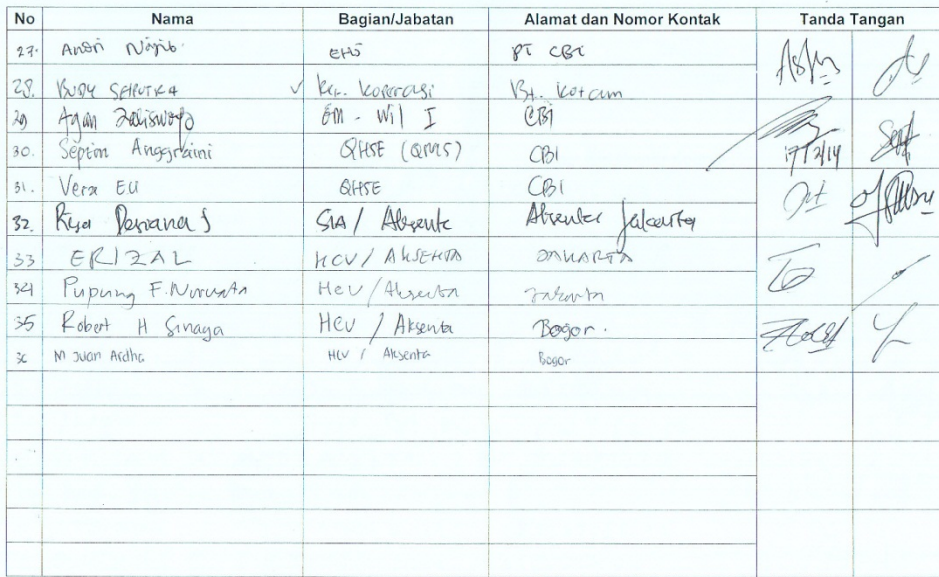 No Nama Bagian/Jabatan Alamat dan Nomor Kontak Tanda Tangan
27. Andri Najib EHS PT CBI
28. BUDY SAPUTRA ✓ Ket. Koperasi Bt. Kotam
29 Agan EM - Wil I CBI
30. Septim Anggraini QHSE (QMS) CBI 17/2/14 Sept
31. Vera Eli QHSE CBI
32. Risa Desiana S SIA / Aksenta Aksenta Jakarta
33 ERIZAL HCV / AKSENTA JAKARTA
34 Pupung F. Nurwata HCV / Aksenta Jakarta
35 Robert H Sinaga HCV / Aksenta Bogor.
36 M Juan Ardha HCV / Aksenta Bogor